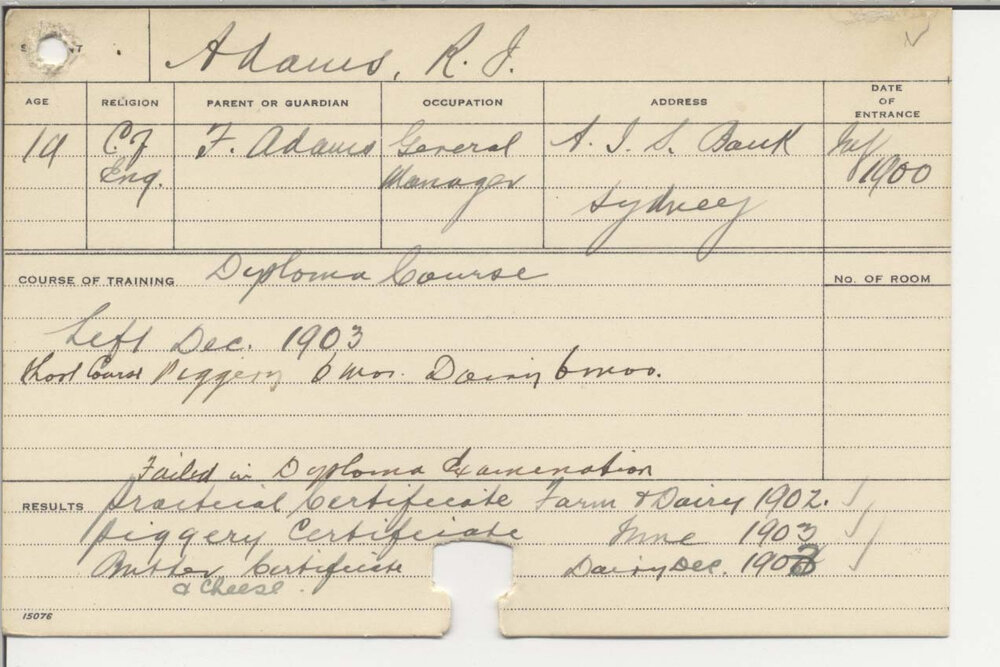 Adams, R. J.
AGE RELIGION PARENT OR GUARDIAN OCCUPATION ADDRESS DATE OF ENTRANCE
19 C. of Eng. F. Adams General Manager A. J. S. Bank Sydney 1900
COURSE OF TRAINING Diploma Course No. OF ROOM
Left Dec. 1903
Short Course Piggery 6 mos. Dairy 6 mos.
Failed in Diploma Examination
RESULTS Practical Certificate Farm & Dairy 1902.
Piggery Certificate June 1903
Butter Certificate Dairy Dec. 1903
& Cheese.
15076